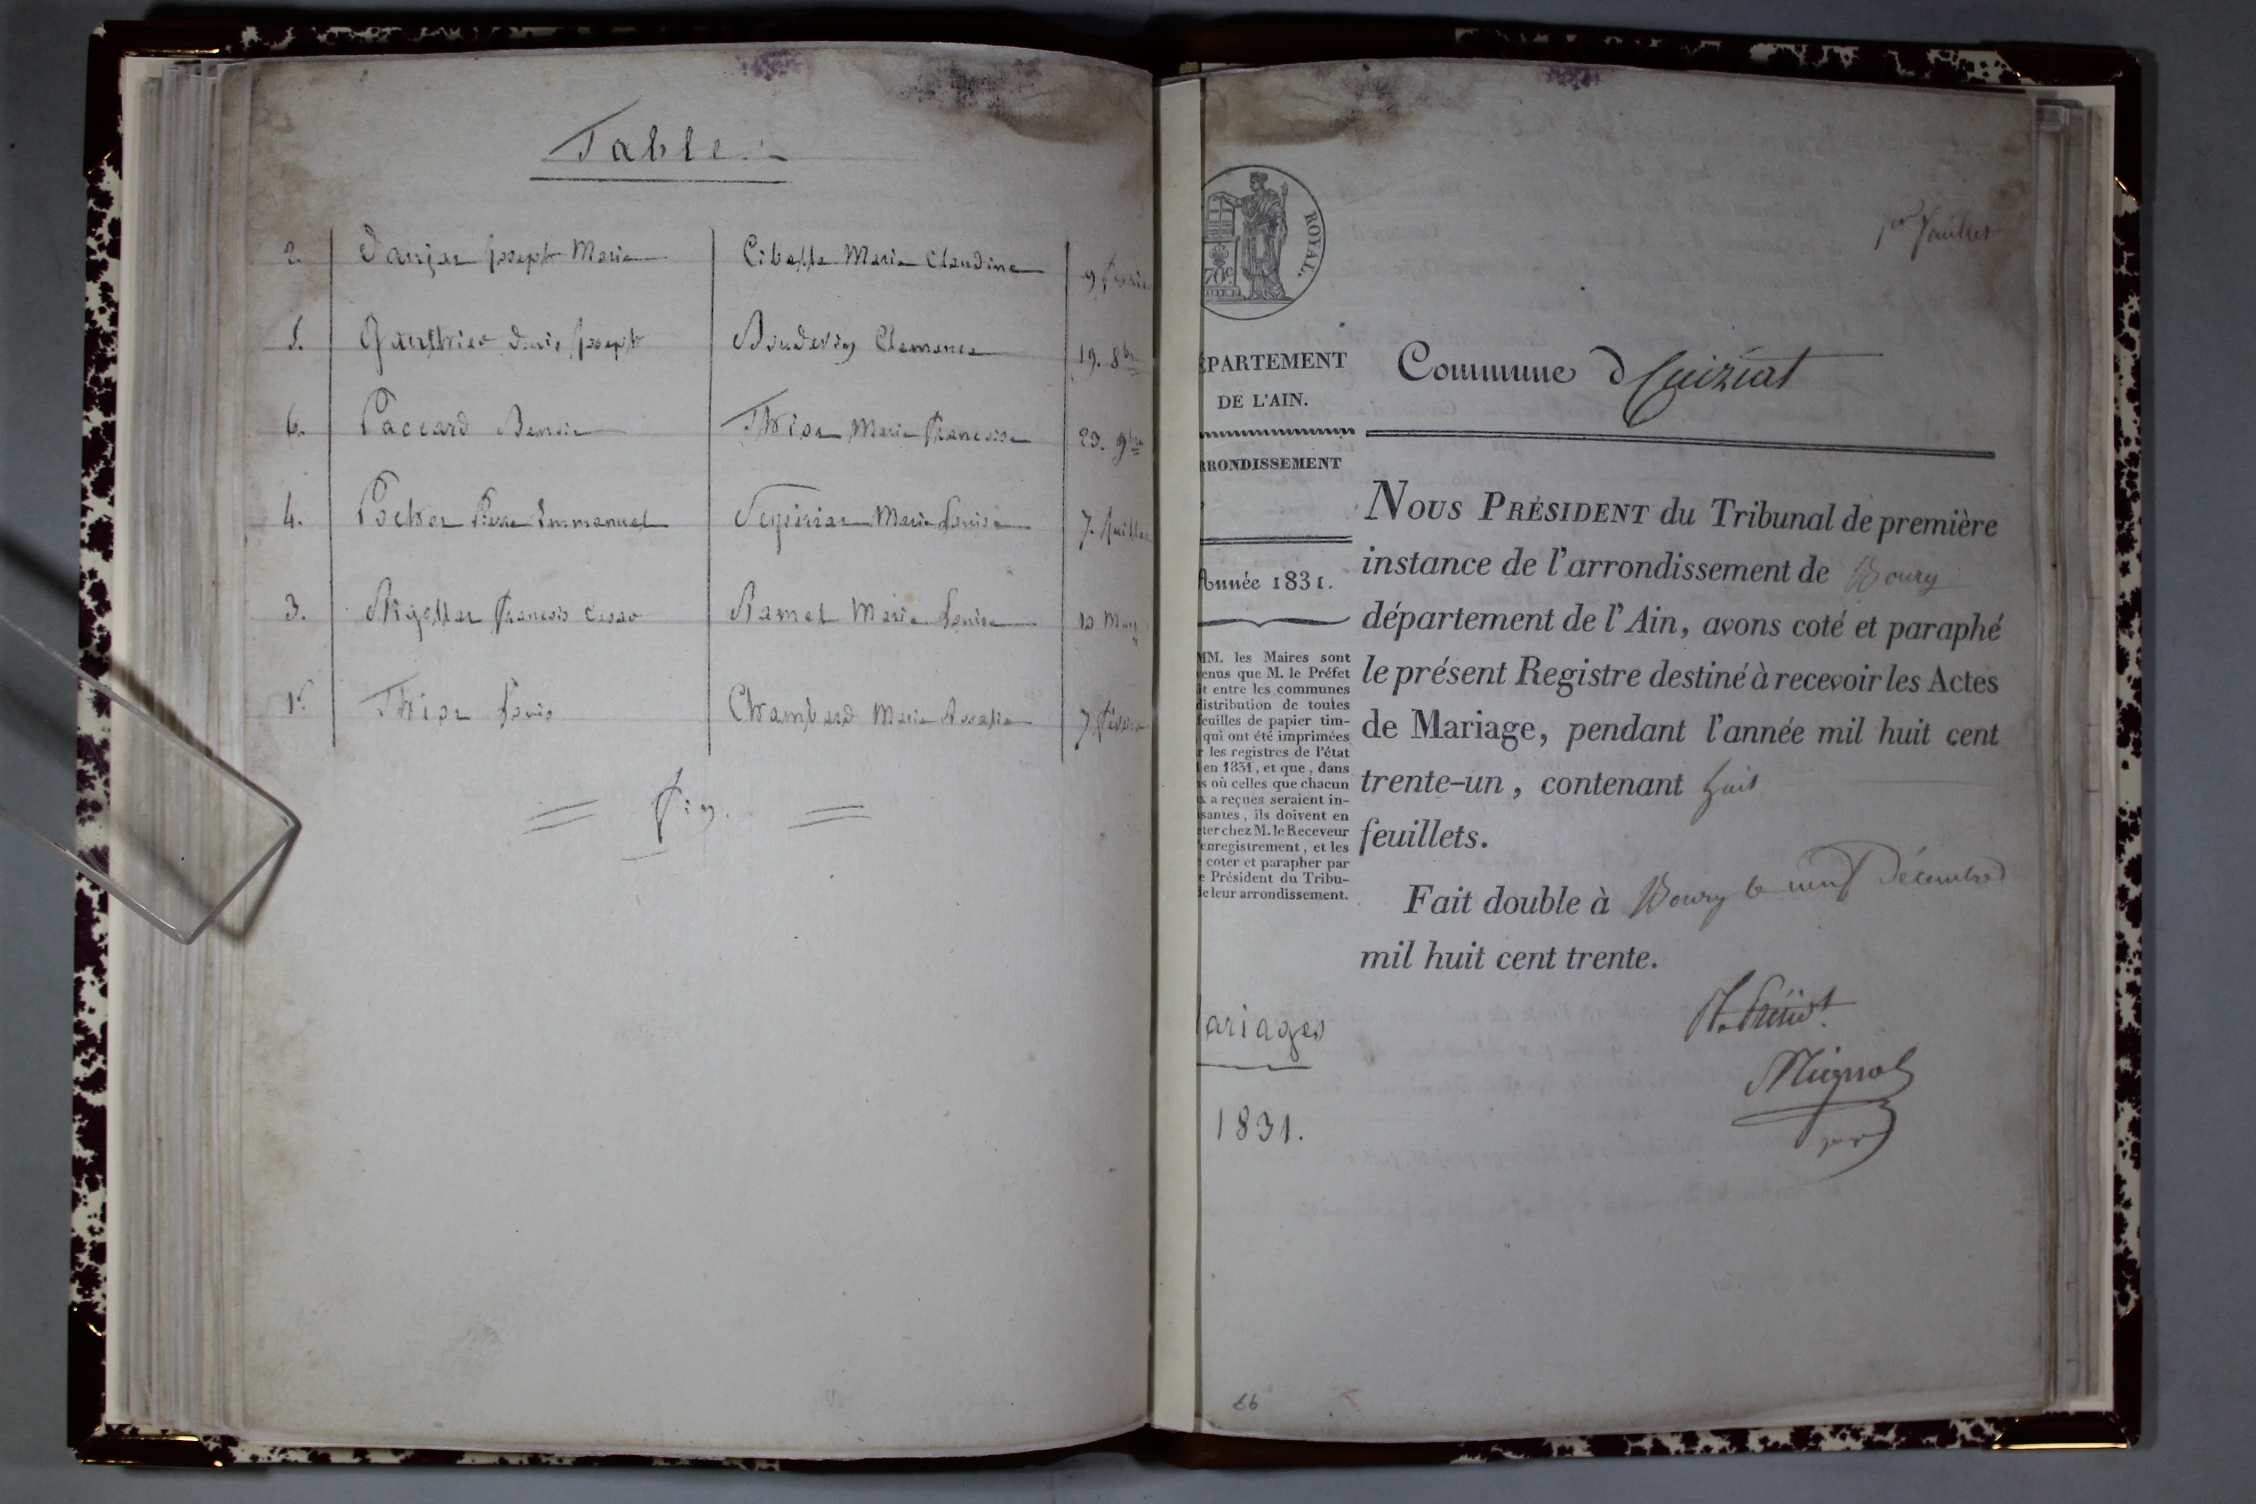 Table.
2. Danjan Joseph Marie Cibelle Marie Claudine 9 février
5. Gauthier Denis Joseph Boudevin Clemence 19. 8bre
6. Paccard Benoit Marie Francoise 23. 9bre
4. Pierre Emmanuel Marie Louise 7. Juillet
3. Francois Cesar Ramel Marie Louise 10 Mars
1r. Louis Chambard Marie 7 février
= fin. =
1er feuillet
ROYAL.
70 c
ÉPARTEMENT
DE L'AIN.
RRONDISSEMENT
Année 1831.
MM. les Maires sont
enus que M. le Préfet
it entre les communes
distribution de toutes
feuilles de papier tim-
qui ont été imprimées
r les registres de l'état
en 1831, et que, dans
s où celles que chacun
x a reçues seraient in-
santes, ils doivent en
eter chez M. le Receveur
enregistrement, et les
coter et parapher par
e Président du Tribu-
de leur arrondissement.
ariages
1831.
66
Commune d Cuiziat
NOUS PRÉSIDENT du Tribunal de première
instance de l'arrondissement de Bourg
département de l'Ain, avons coté et paraphé
le présent Registre destiné à recevoir les Actes
de Mariage, pendant l'année mil huit cent
trente-un, contenant huit
feuillets.
Fait double à Bourg le neuf Décembre
mil huit cent trente.